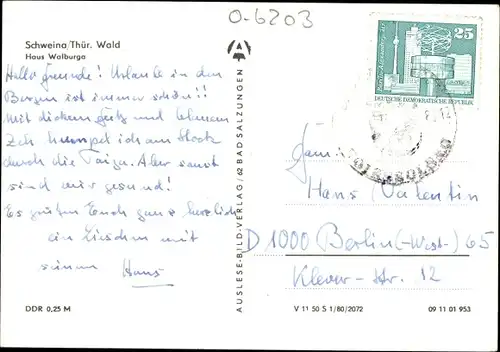 O-6203
Schweina/Thür. Wald
Haus Walburga
Hallo Freunde! Urlaub in den
Bergen ist immer schön!!
Mit dickem und blauem
Zeh humpel ich am Stock
durch die Taiga. Aber sonst
sind wir gesund!
Es grüßen Euch ganz herzlich
ein mit
seinem Hans
DDR 0,25 M
AUSLESE-BILD-VERLAG / 62 BAD SALZUNGEN
25
Berlin, Alexanderplatz
DEUTSCHE DEMOKRATISCHE REPUBLIK
Fam.
Hans Valentin
D 1000 Berlin (-West-) 65
Klever-Str. 12
V 11 50 S 1/80/2072
09 11 01 953